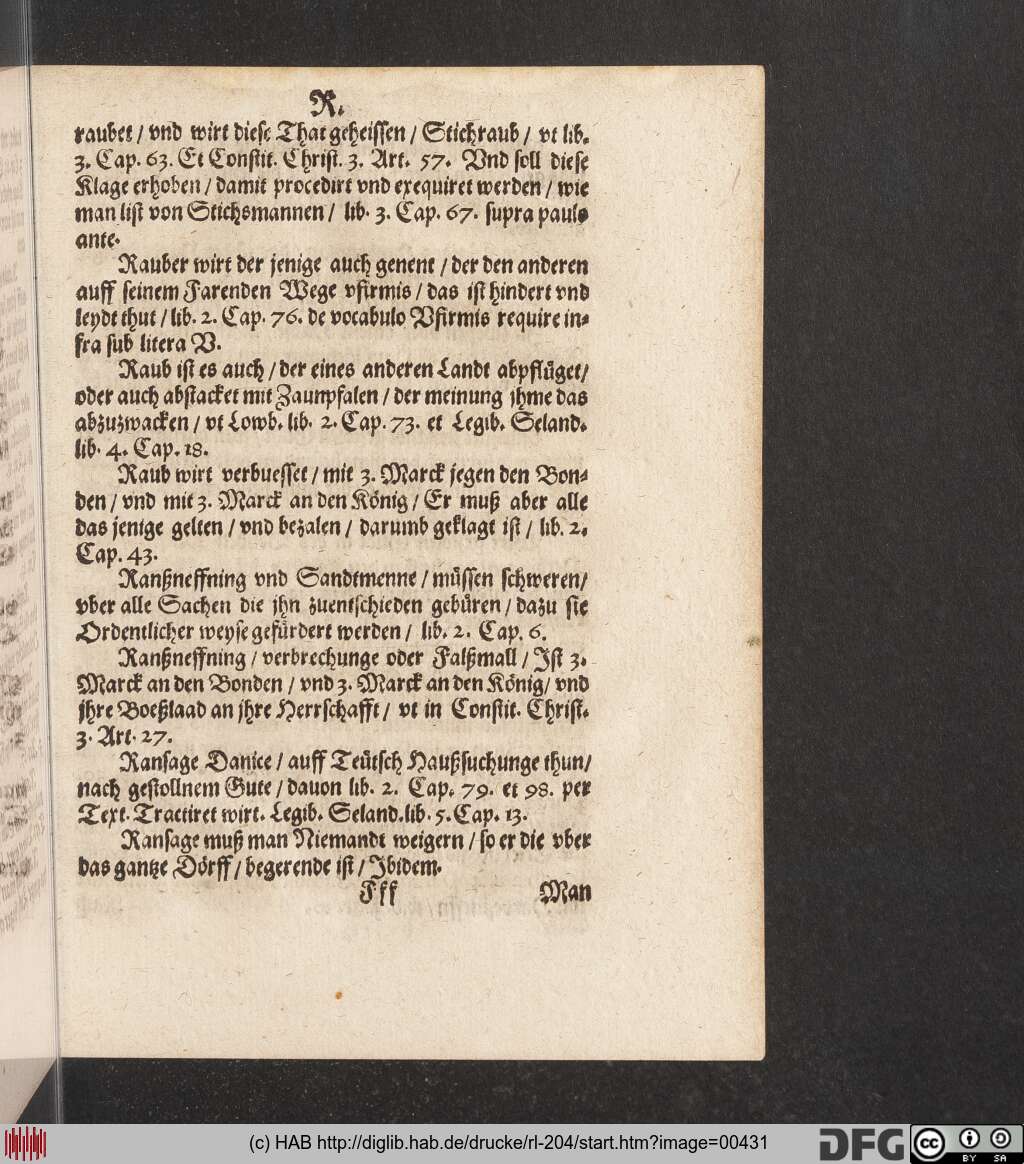 R.
raubet / vnd wirt diese That geheissen / Stichraub / vt lib.
3. Cap. 63. Et Constit. Christ. 3. Art. 57. Vnd soll diese
Klage erhoben / damit procedirt vnd exequiret werden / wie
man list von Stichsmannen / lib. 3. Cap. 67. supra paulo
ante.
Rauber wirt der jenige auch genent / der den anderen
auff seinem Farenden Wege vfirmis / das ist hindert vnd
leydt thut / lib. 2. Cap. 76. de vocabulo Vfirmis require in-
fra sub litera V.
Raub ist es auch / der eines anderen Landt abpflüget /
oder auch abstacket mit Zaunpfalen / der meinung jhme das
abzuzwacken / vt Lowb. lib. 2. Cap. 73. et Legib. Seland.
lib. 4. Cap. 18.
Raub wirt verbuesset / mit 3. Marck jegen den Bon-
den / vnd mit 3. Marck an den König / Er muß aber alle
das jenige gelten / vnd bezalen / darumb geklagt ist / lib. 2.
Cap. 43.
Ranßneffning vnd Sandtmenne / müssen schweren /
vber alle Sachen die jhn zuentschieden gebüren / dazu sie
Ordentlicher weyse gefürdert werden / lib. 2. Cap. 6.
Ranßneffning / verbrechunge oder Falßmall / Ist 3.
Marck an den Bonden / vnd 3. Marck an den König / vnd
jhre Boeßlaad an jhre Herrschafft / vt in Constit. Christ.
3. Art. 27.
Ransage Danice / auff Teütsch Haußsuchunge thun /
nach gestollnem Gute / dauon lib. 2. Cap. 79. et 98. per
Text. Tractiret wirt. Legib. Seland. lib. 5. Cap. 13.
Ransage muß man Niemandt weigern / so er die vber
das gantze Dörff / begerende ist / Ibidem.
Fff Man
(c) HAB http://diglib.hab.de/drucke/rl-204/start.htm?image=00431
DFG
cc BY SA